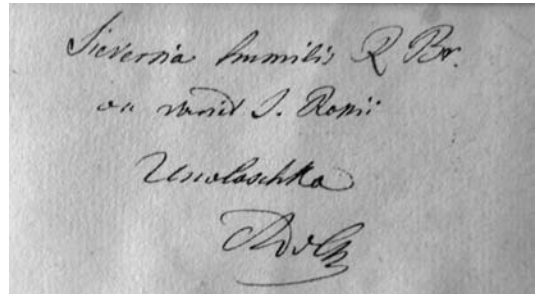 Sieversia humilis R Br.
ou varié S. Rossii
Unalaschka